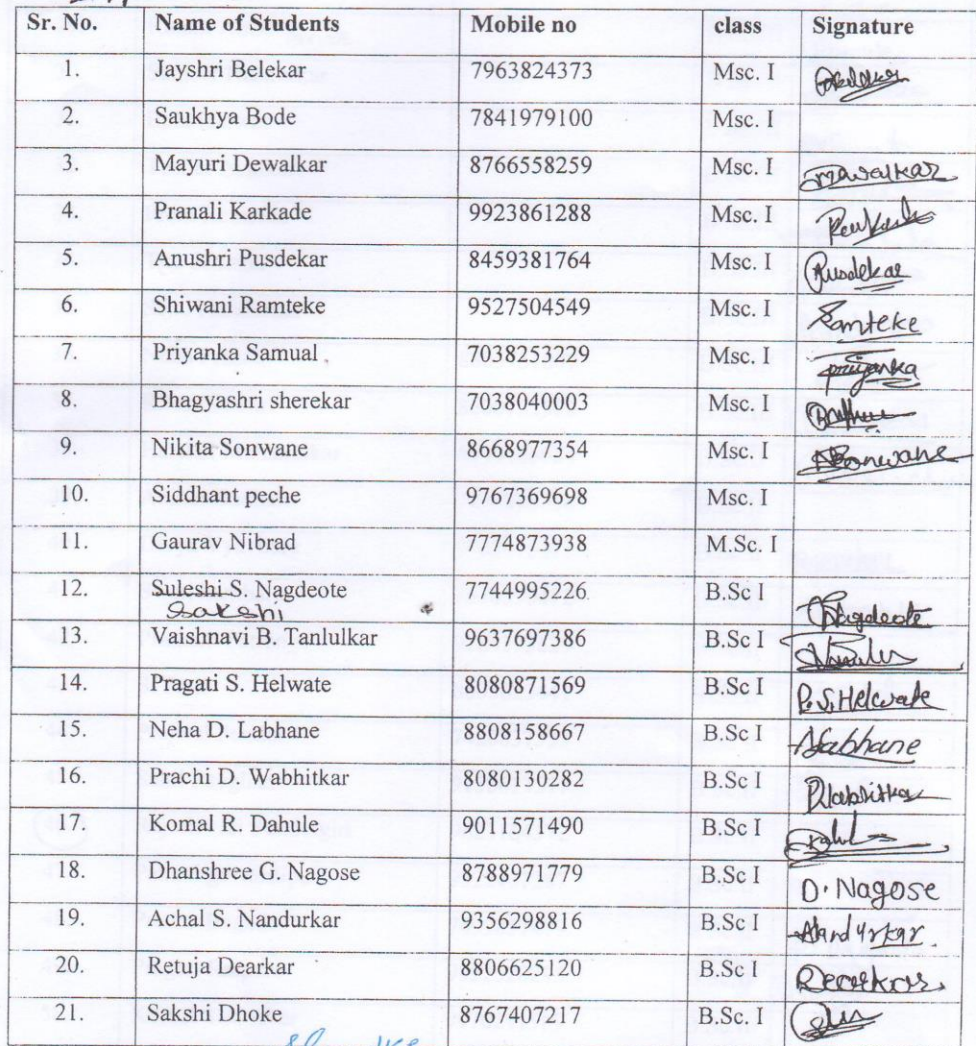 Sr. No. Name of Students Mobile no class Signature
1. Jayshri Belekar 7963824373 Msc. I
2. Saukhya Bode 7841979100 Msc. I
3. Mayuri Dewalkar 8766558259 Msc. I
4. Pranali Karkade 9923861288 Msc. I
5. Anushri Pusdekar 8459381764 Msc. I Pusdekar
6. Shiwani Ramteke 9527504549 Msc. I Ramteke
7. Priyanka Samual 7038253229 Msc. I Priyanka
8. Bhagyashri sherekar 7038040003 Msc. I
9. Nikita Sonwane 8668977354 Msc. I NSonwane
10. Siddhant peche 9767369698 Msc. I
11. Gaurav Nibrad 7774873938 M.Sc. I
12. Suleshi S. Nagdeote 7744995226 B.Sc I Nagdeote
Sakshi
13. Vaishnavi B. Tanlulkar 9637697386 B.Sc I
14. Pragati S. Helwate 8080871569 B.Sc I P.S.Helwate
15. Neha D. Labhane 8808158667 B.Sc I Labhane
16. Prachi D. Wabhitkar 8080130282 B.Sc I
17. Komal R. Dahule 9011571490 B.Sc I
18. Dhanshree G. Nagose 8788971779 B.Sc I D. Nagose
19. Achal S. Nandurkar 9356298816 B.Sc I
20. Retuja Dearkar 8806625120 B.Sc I
21. Sakshi Dhoke 8767407217 B.Sc. I